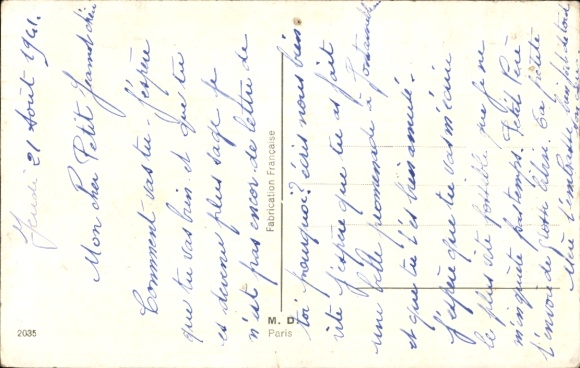 Jeudi 21 Août 1941.
Mon cher Petit Jeannot chéri
Comment vas tu. J'espère
que tu vas bien et que tu
es devenu plus sage je
n'ait pas encor de lettre de
toi pourquoi? écris nous bien
vite J'espère que tu as fait
une belle promenade à
et que tu t'es bien amusé.
J'espère que tu vas m'écrire
le plus vite possible que je ne
m'inquiète pas longtemps. Petit Père
t'envoi de gros bisous. Ta petite
Mère t'embrasse bien fort de tout
Fabrication Française
M. D.
Paris
2035